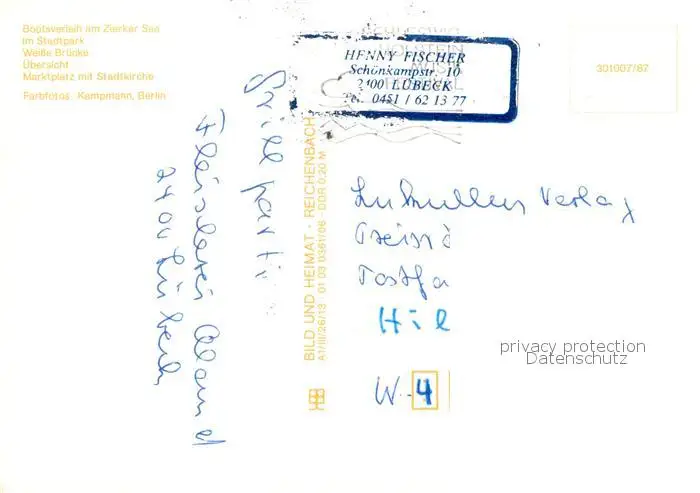 Bootsverleih am Zierker See
im Stadtpark
Weiße Brücke
Übersicht
Marktplatz mit Stadtkirche
Farbfotos: Kampmann, Berlin
SCHLESWIG
HOLSTEIN
MUSIK
HENNY FISCHER
Schönkampstr. 10
2400 LÜBECK
Tel. 0451 / 62 13 77
301007/87
Grill party
Fleischerei
2400 Lübeck
BILD UND HEIMAT · REICHENBACH
A1/III/26/13 01 03 0361/06 · DDR 0,20 M
Lukullus Verlag
Preis
Postfa
Hil
W-4
privacy protection
Datenschutz